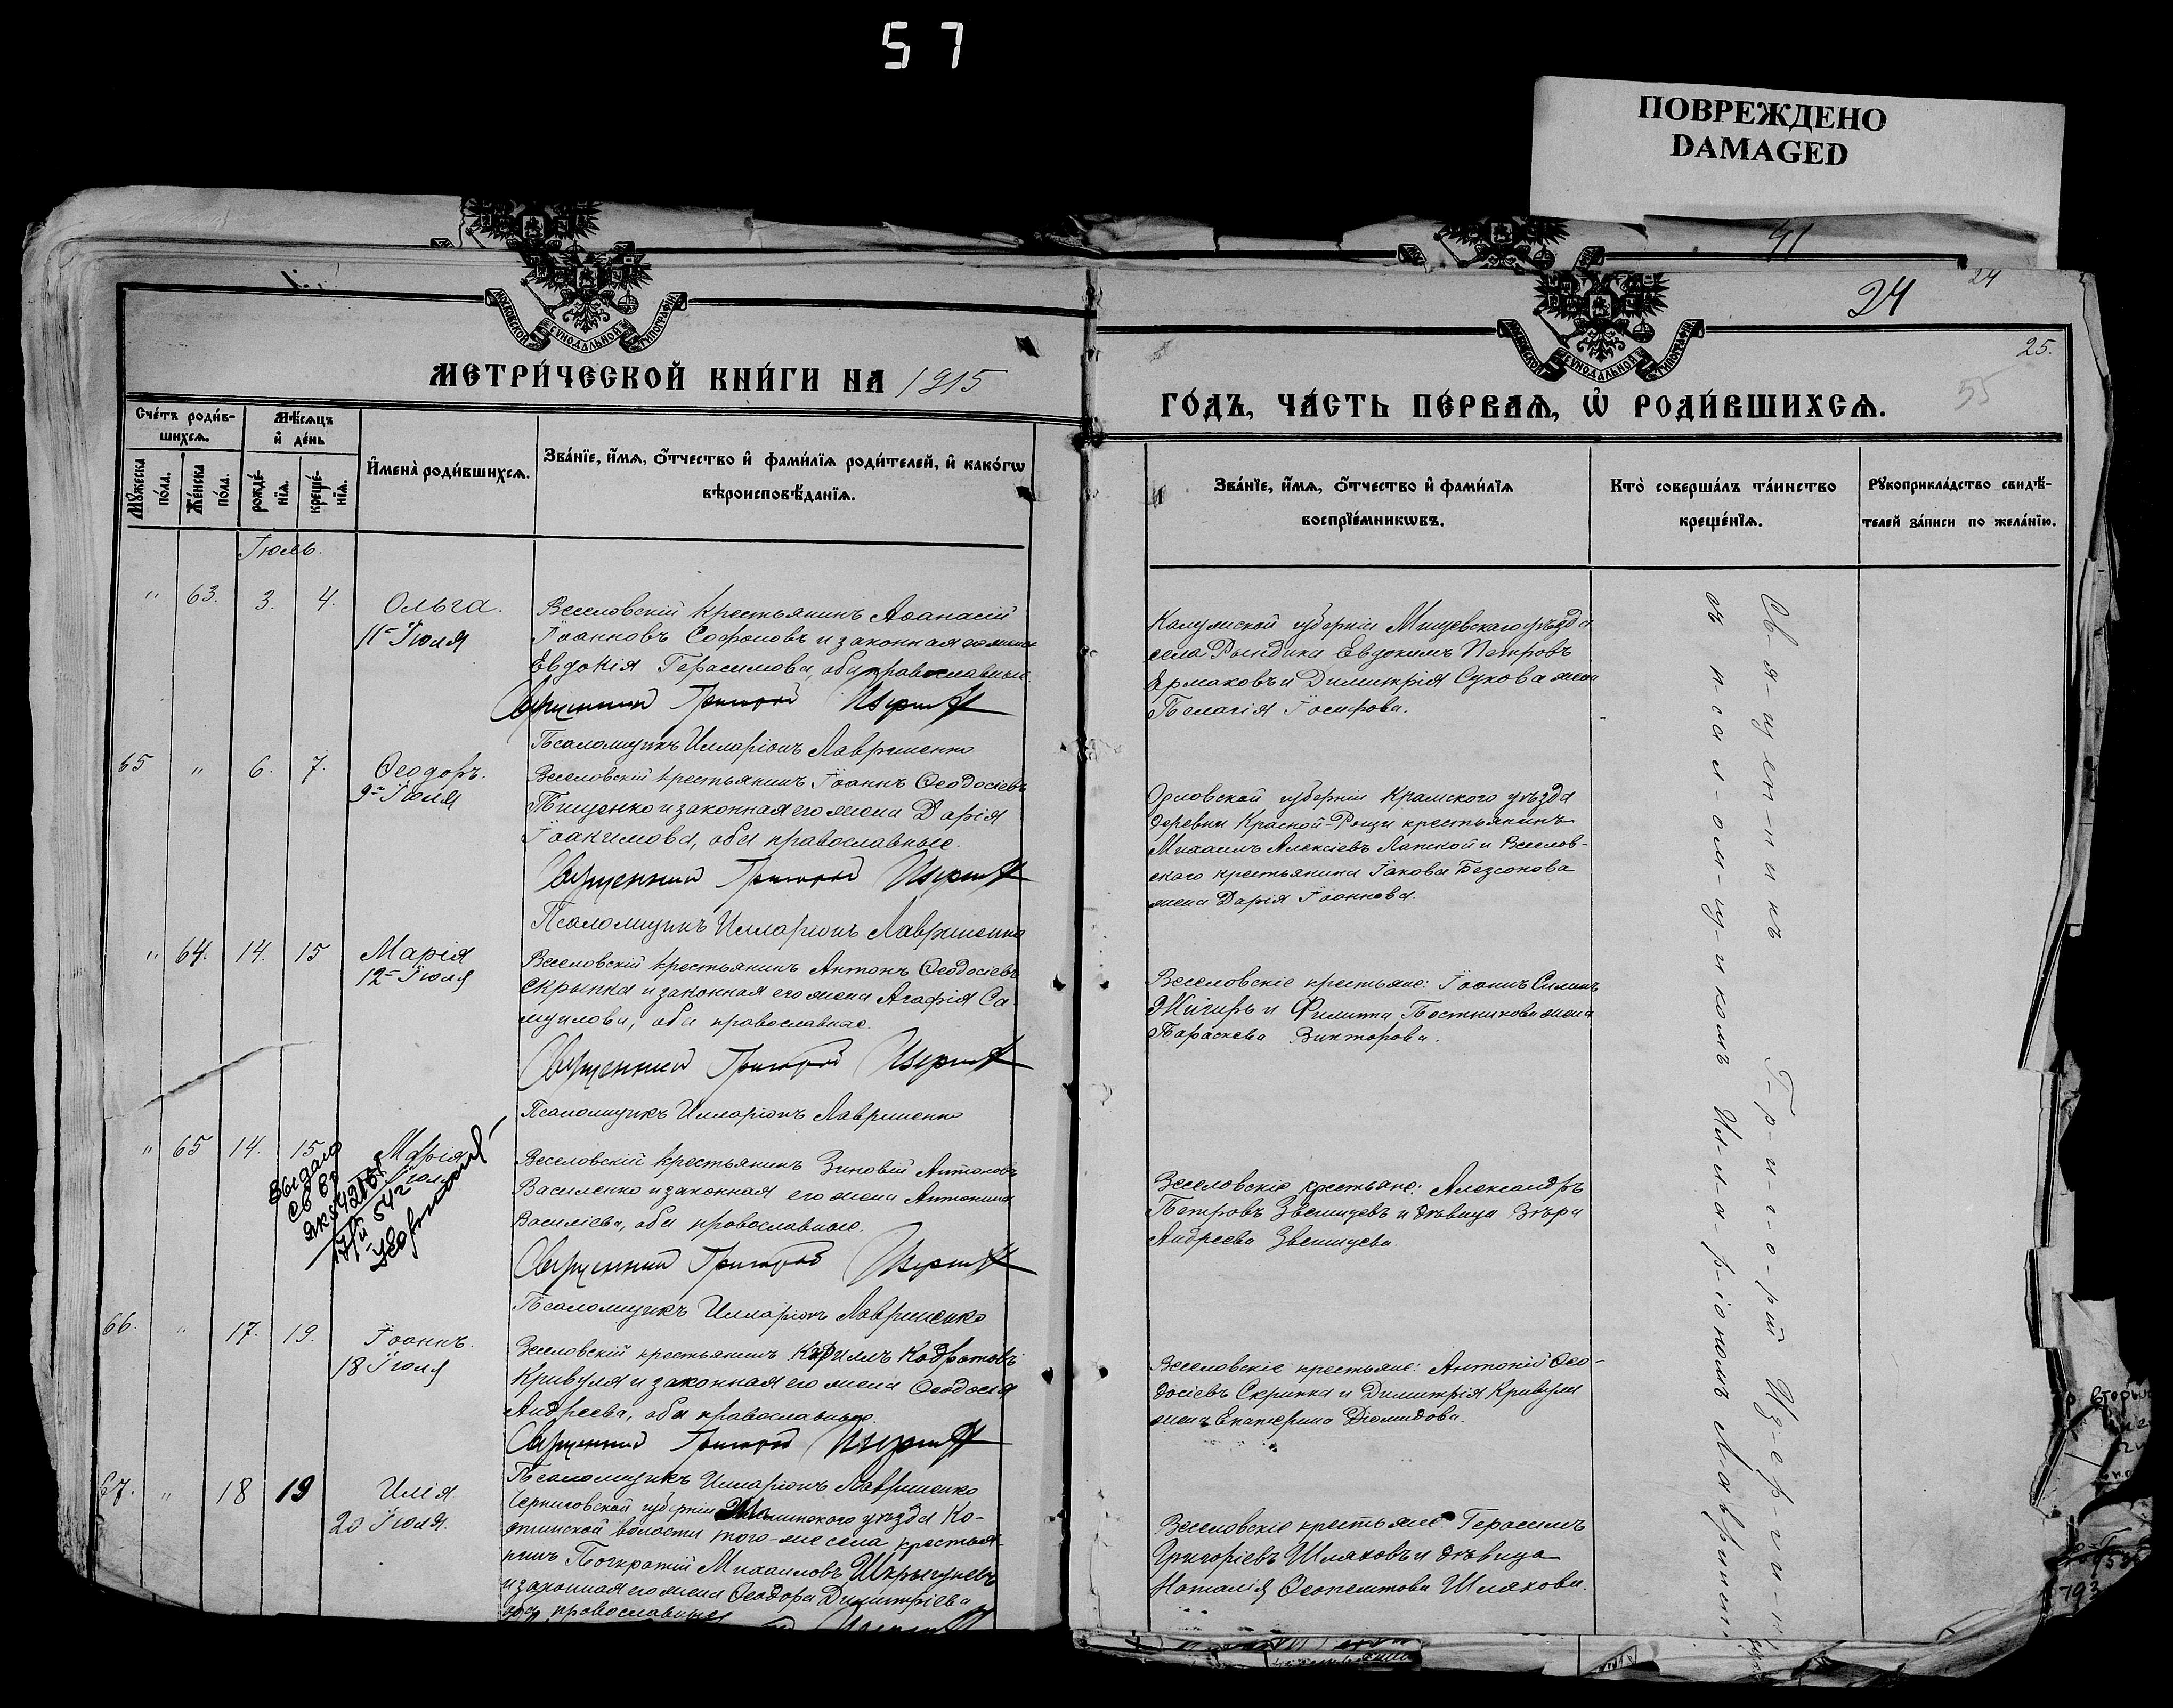 57
ПОВРЕЖДЕНО
DAMAGED
41
24
24
25.
55
МОСКОВСКОЙ СѴНОДАЛЬНОЙ ТИПОГРАФІИ
МОСКОВСКОЙ СѴНОДАЛЬНОЙ ТИПОГРАФІИ
МЕТРИ́ЧЕСКОЙ КНИ́ГИ НА 1915
ГО́ДЪ, ЧА́СТЬ ПЕ́РВАѦ, Ѡ҆ РОДИ́ВШИХСѦ.
Сче́тъ роди́в-
шихсѧ.
Мѣ́сѧцъ
и҆ де́нь
Мꙋ́жеска
по́ла.
Же́нска
по́ла.
рожде́-
нїѧ.
креще́-
нїѧ.
И҆мена̀ роди́вшихсѧ.
Зва́нїе, и҆́мѧ, ѻ҆́тчество и҆ фами́лїѧ роди́телей, и҆ како́гѡ
вѣроисповѣ́данїѧ.
Зва́нїе, и҆́мѧ, ѻ҆́тчество и҆ фами́лїѧ
воспрїе́мникѡвъ.
Кто̀ соверша́лъ та́инство
креще́нїѧ.
Рꙋкоприкла́дство свидѣ́-
телей за́писи по жела́нїю.
Іюль.
" 63. 3. 4. Ольга.
11го Іюля
Веселовскій крестьянинъ Аѳанасій
Іоанновъ Софоновъ и законная его жена
Евдокія Герасимова, оба православные.
Священникъ Григорій
Псаломщикъ Илларіонъ Лавриненко
Калужской губерніи Мищевскаго уѣзда
села Рындина Евдокимъ Петровъ
Ермаковъ и Димитрія Сукова жена
Пелагія
65 " 6. 7. Ѳеодоръ.
9го Іюля
Веселовскій крестьянинъ Іоаннъ Ѳеодосіевъ
Тищенко и законная его жена Дарія
Іоакимова, оба православные.
Священникъ Григорій
Псаломщикъ Илларіонъ Лавриненко
Орловской губерніи Крамского уѣзда
деревни Красной-Рощи крестьянинъ
Михаилъ Алексіевъ Лапской и Веселов-
скаго крестьянина Іакова Безсонова
жена Дарія Іоаннова.
" 64. 14. 15 Марія
12го Іюля
Веселовскій крестьянинъ Антонъ Ѳеодосіевъ
Скрыпка и законная его жена Агафія Са-
муилова, оба православные.
Священникъ Григорій
Псаломщикъ Илларіонъ Лавриненко
Веселовскіе крестьяне: Іоаннъ Силинъ
Жигирь и Филиппа Постникова жена
Параскева Викторова.
" 65 14. 15 Марія
Іюля
Выдано
св во
Веселовскій крестьянинъ Зиновій Антоновъ
Василенко и законная его жена Антонина
Василіева, оба православные.
Священникъ Григорій
Псаломщикъ Илларіонъ Лавриненко
Веселовскіе крестьяне: Александръ
Петровъ Звенищевъ и дѣвица Вѣра
Андреева Звенищева.
66. " 17. 19. Іоаннъ.
18 Іюля
Веселовскій крестьянинъ Кирилъ Кодратовъ
Кривуля и законная его жена Ѳеодосія
Андреева, оба православные.
Священникъ Григорій
Псаломщикъ Илларіонъ Лавриненко
Веселовскіе крестьяне: Антоній Ѳео-
досіевъ Скрипка и Димитрія Кривули
жена Екатерина Діомидова.
67. " 18 19 Илія.
20 Іюля.
Черниговской губерніи уѣзда Ко-
волости того-же села крестья-
нинъ Панкратій Михаиловъ Шкрыгуневъ
и законная его жена Ѳеодора Димитріева
оба православные
Веселовскіе крестьяне Герасимъ
Григоріевъ Шляховъ и дѣвица
Наталія Ѳеопемптова Шляхова.
Св-я-щ-ен-н-и-къ Г-р-и-г-о-рій
съ п-са-л-ом-щ-и-комъ Ил-л-а-р-іономъ